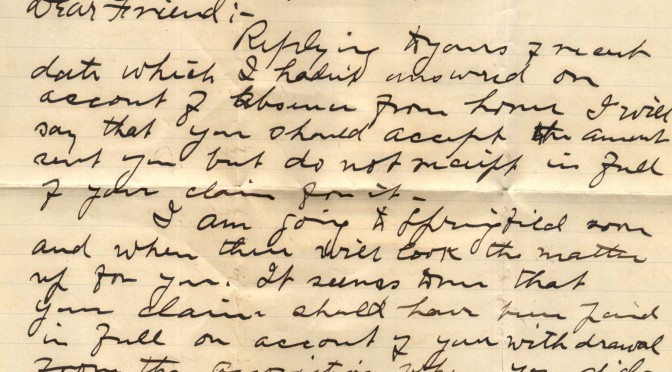 Dear Friend:-
Replying to yours of recent
date which I hadnt answered on
account of absence from home I will
say that you should accept the amount
sent you but do not receipt in full
of your claim for it -
I am going to Springfield soon
and when there will look the matter
up for you. It seems to me that
your claim should have been paid
in full on account of your withdrawal
from the association when you did